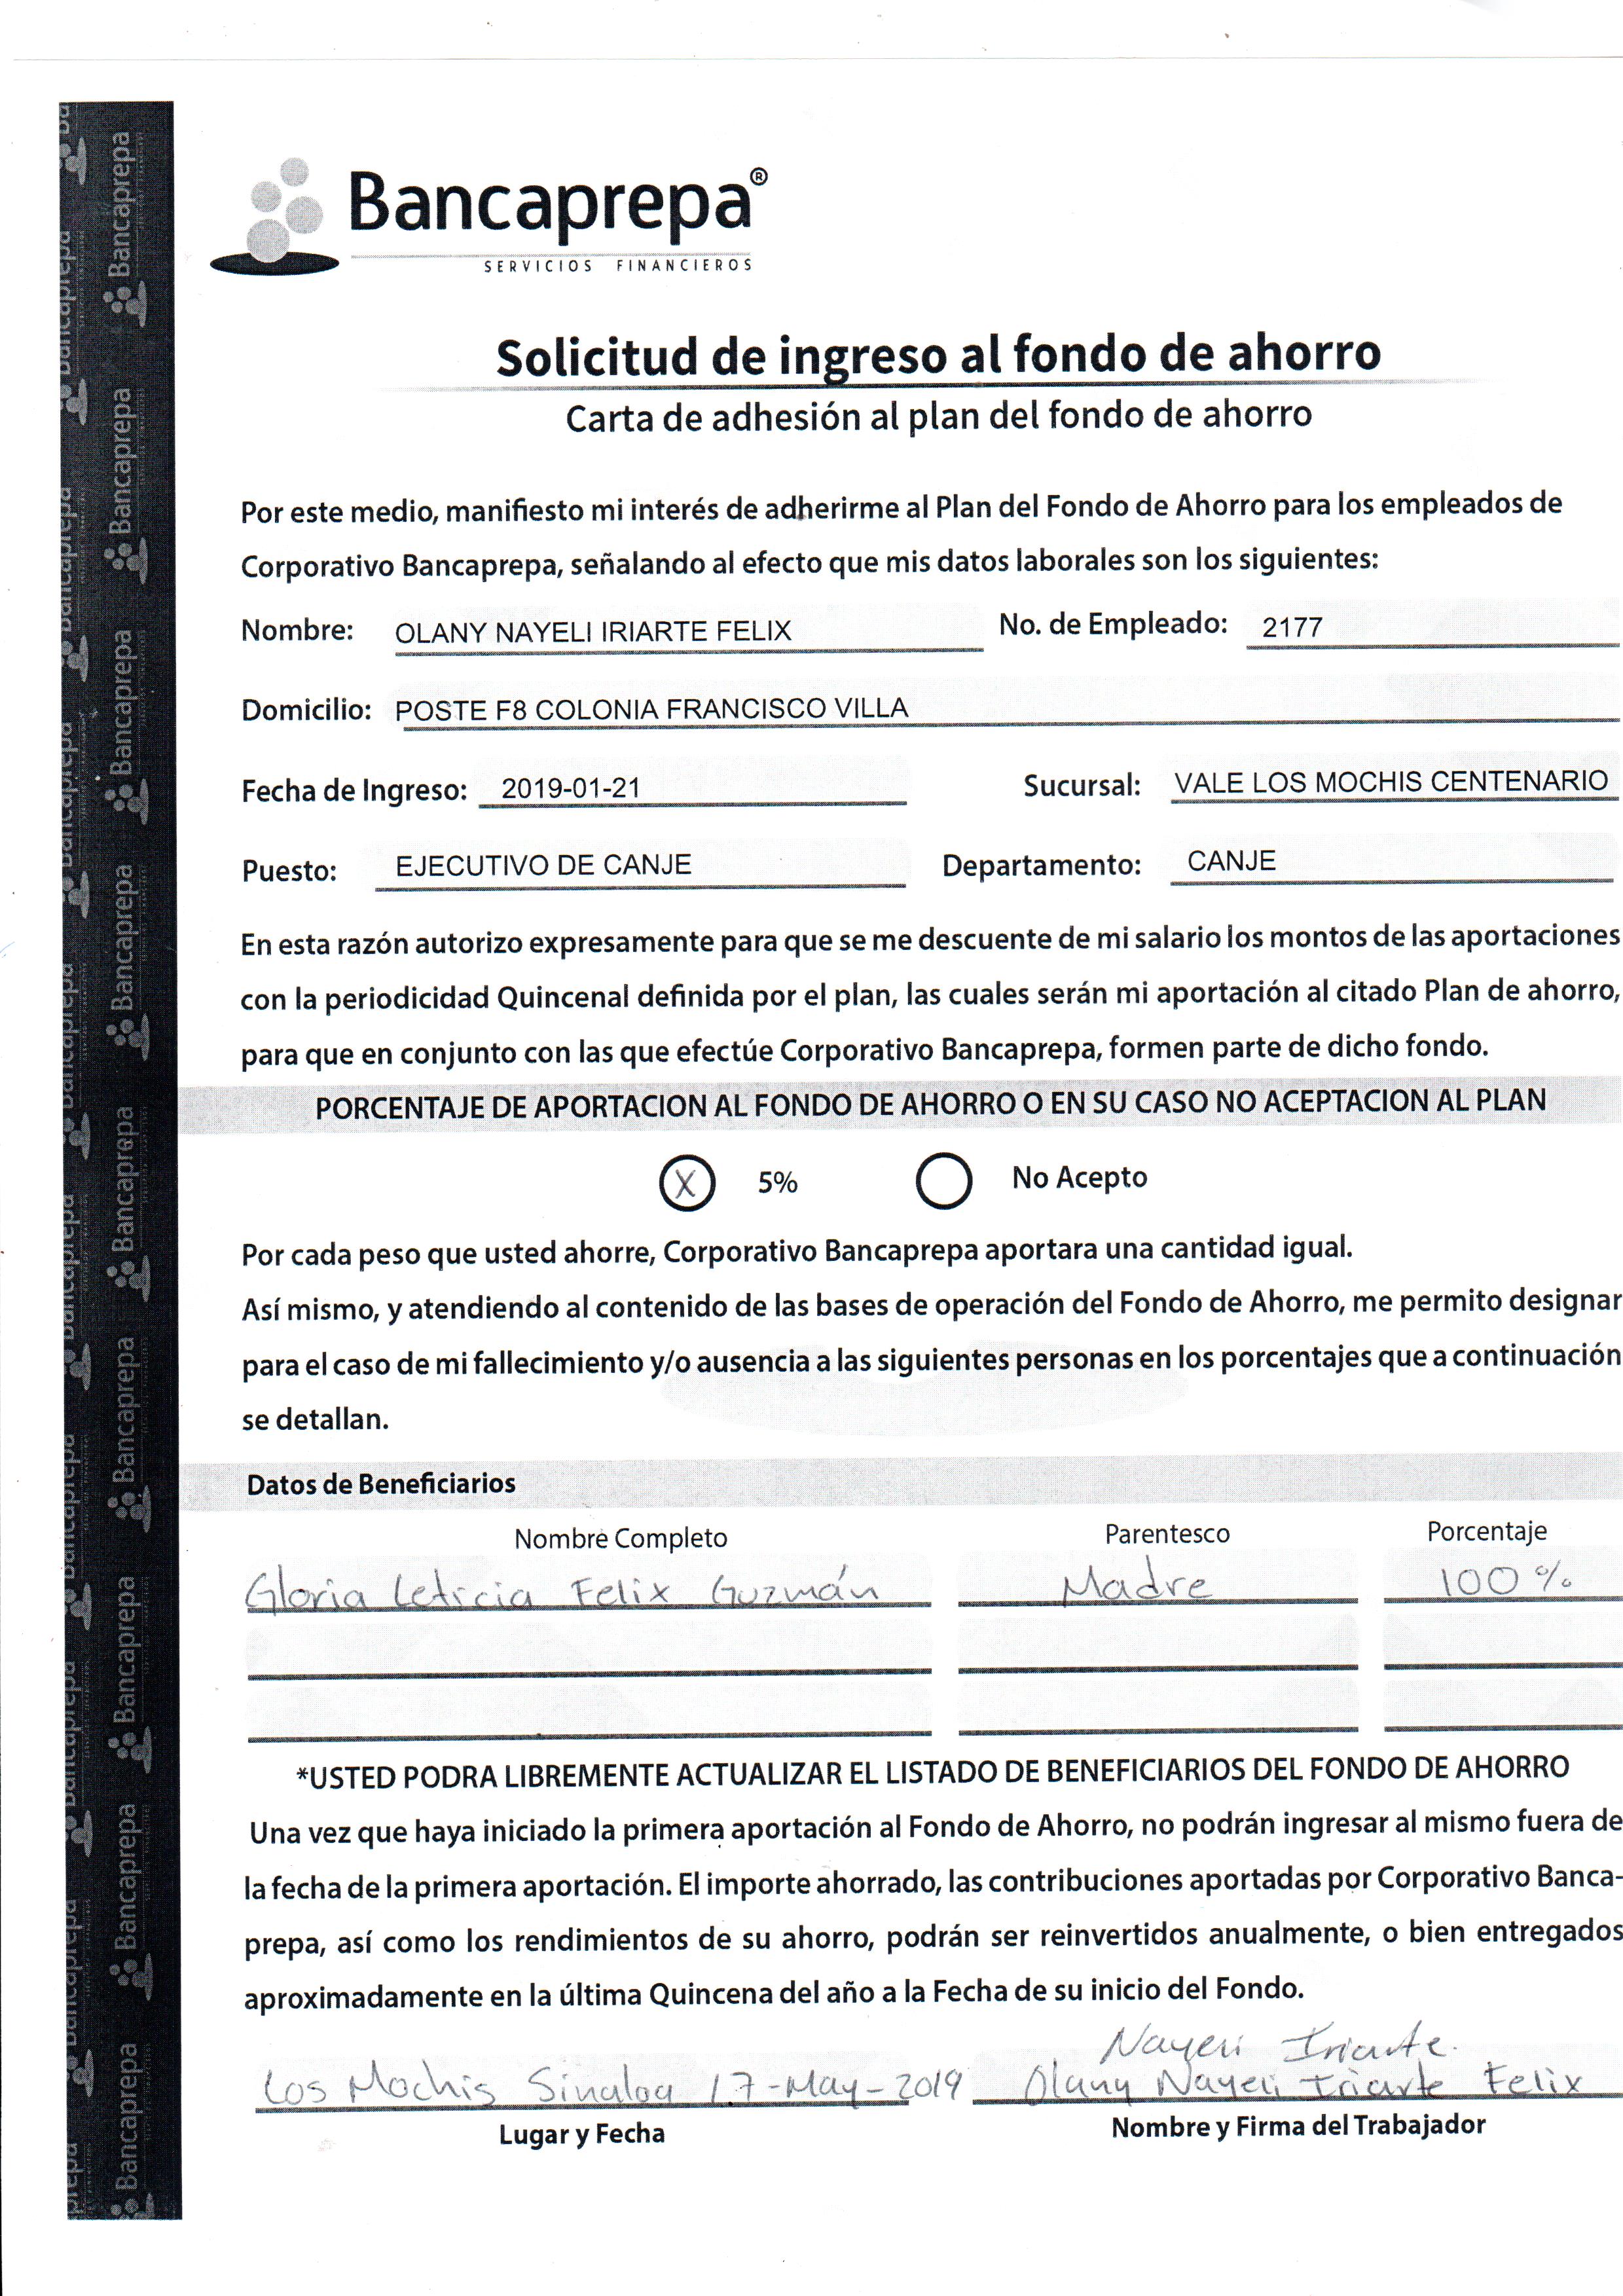 Bancaprepa®
SERVICIOS FINANCIEROS
Solicitud de ingreso al fondo de ahorro
Carta de adhesión al plan del fondo de ahorro
Por este medio, manifiesto mi interés de adherirme al Plan del Fondo de Ahorro para los empleados de
Corporativo Bancaprepa, señalando al efecto que mis datos laborales son los siguientes:
Nombre: OLANY NAYELI IRIARTE FELIX No. de Empleado: 2177
Domicilio: POSTE F8 COLONIA FRANCISCO VILLA
Fecha de Ingreso: 2019-01-21 Sucursal: VALE LOS MOCHIS CENTENARIO
Puesto: EJECUTIVO DE CANJE Departamento: CANJE
En esta razón autorizo expresamente para que se me descuente de mi salario los montos de las aportaciones
con la periodicidad Quincenal definida por el plan, las cuales serán mi aportación al citado Plan de ahorro,
para que en conjunto con las que efectúe Corporativo Bancaprepa, formen parte de dicho fondo.
PORCENTAJE DE APORTACION AL FONDO DE AHORRO O EN SU CASO NO ACEPTACION AL PLAN
X 5% No Acepto
Por cada peso que usted ahorre, Corporativo Bancaprepa aportara una cantidad igual.
Así mismo, y atendiendo al contenido de las bases de operación del Fondo de Ahorro, me permito designar
para el caso de mi fallecimiento y/o ausencia a las siguientes personas en los porcentajes que a continuación
se detallan.
Datos de Beneficiarios
Nombre Completo Parentesco Porcentaje
Gloria Leticia Felix Guzmán Madre 100%
*USTED PODRA LIBREMENTE ACTUALIZAR EL LISTADO DE BENEFICIARIOS DEL FONDO DE AHORRO
Una vez que haya iniciado la primera aportación al Fondo de Ahorro, no podrán ingresar al mismo fuera de
la fecha de la primera aportación. El importe ahorrado, las contribuciones aportadas por Corporativo Banca-
prepa, así como los rendimientos de su ahorro, podrán ser reinvertidos anualmente, o bien entregados
aproximadamente en la última Quincena del año a la Fecha de su inicio del Fondo.
Nayeli Iriarte.
Los Mochis Sinaloa 17-May-2019 Olany Nayeli Iriarte Felix
Lugar y Fecha Nombre y Firma del Trabajador